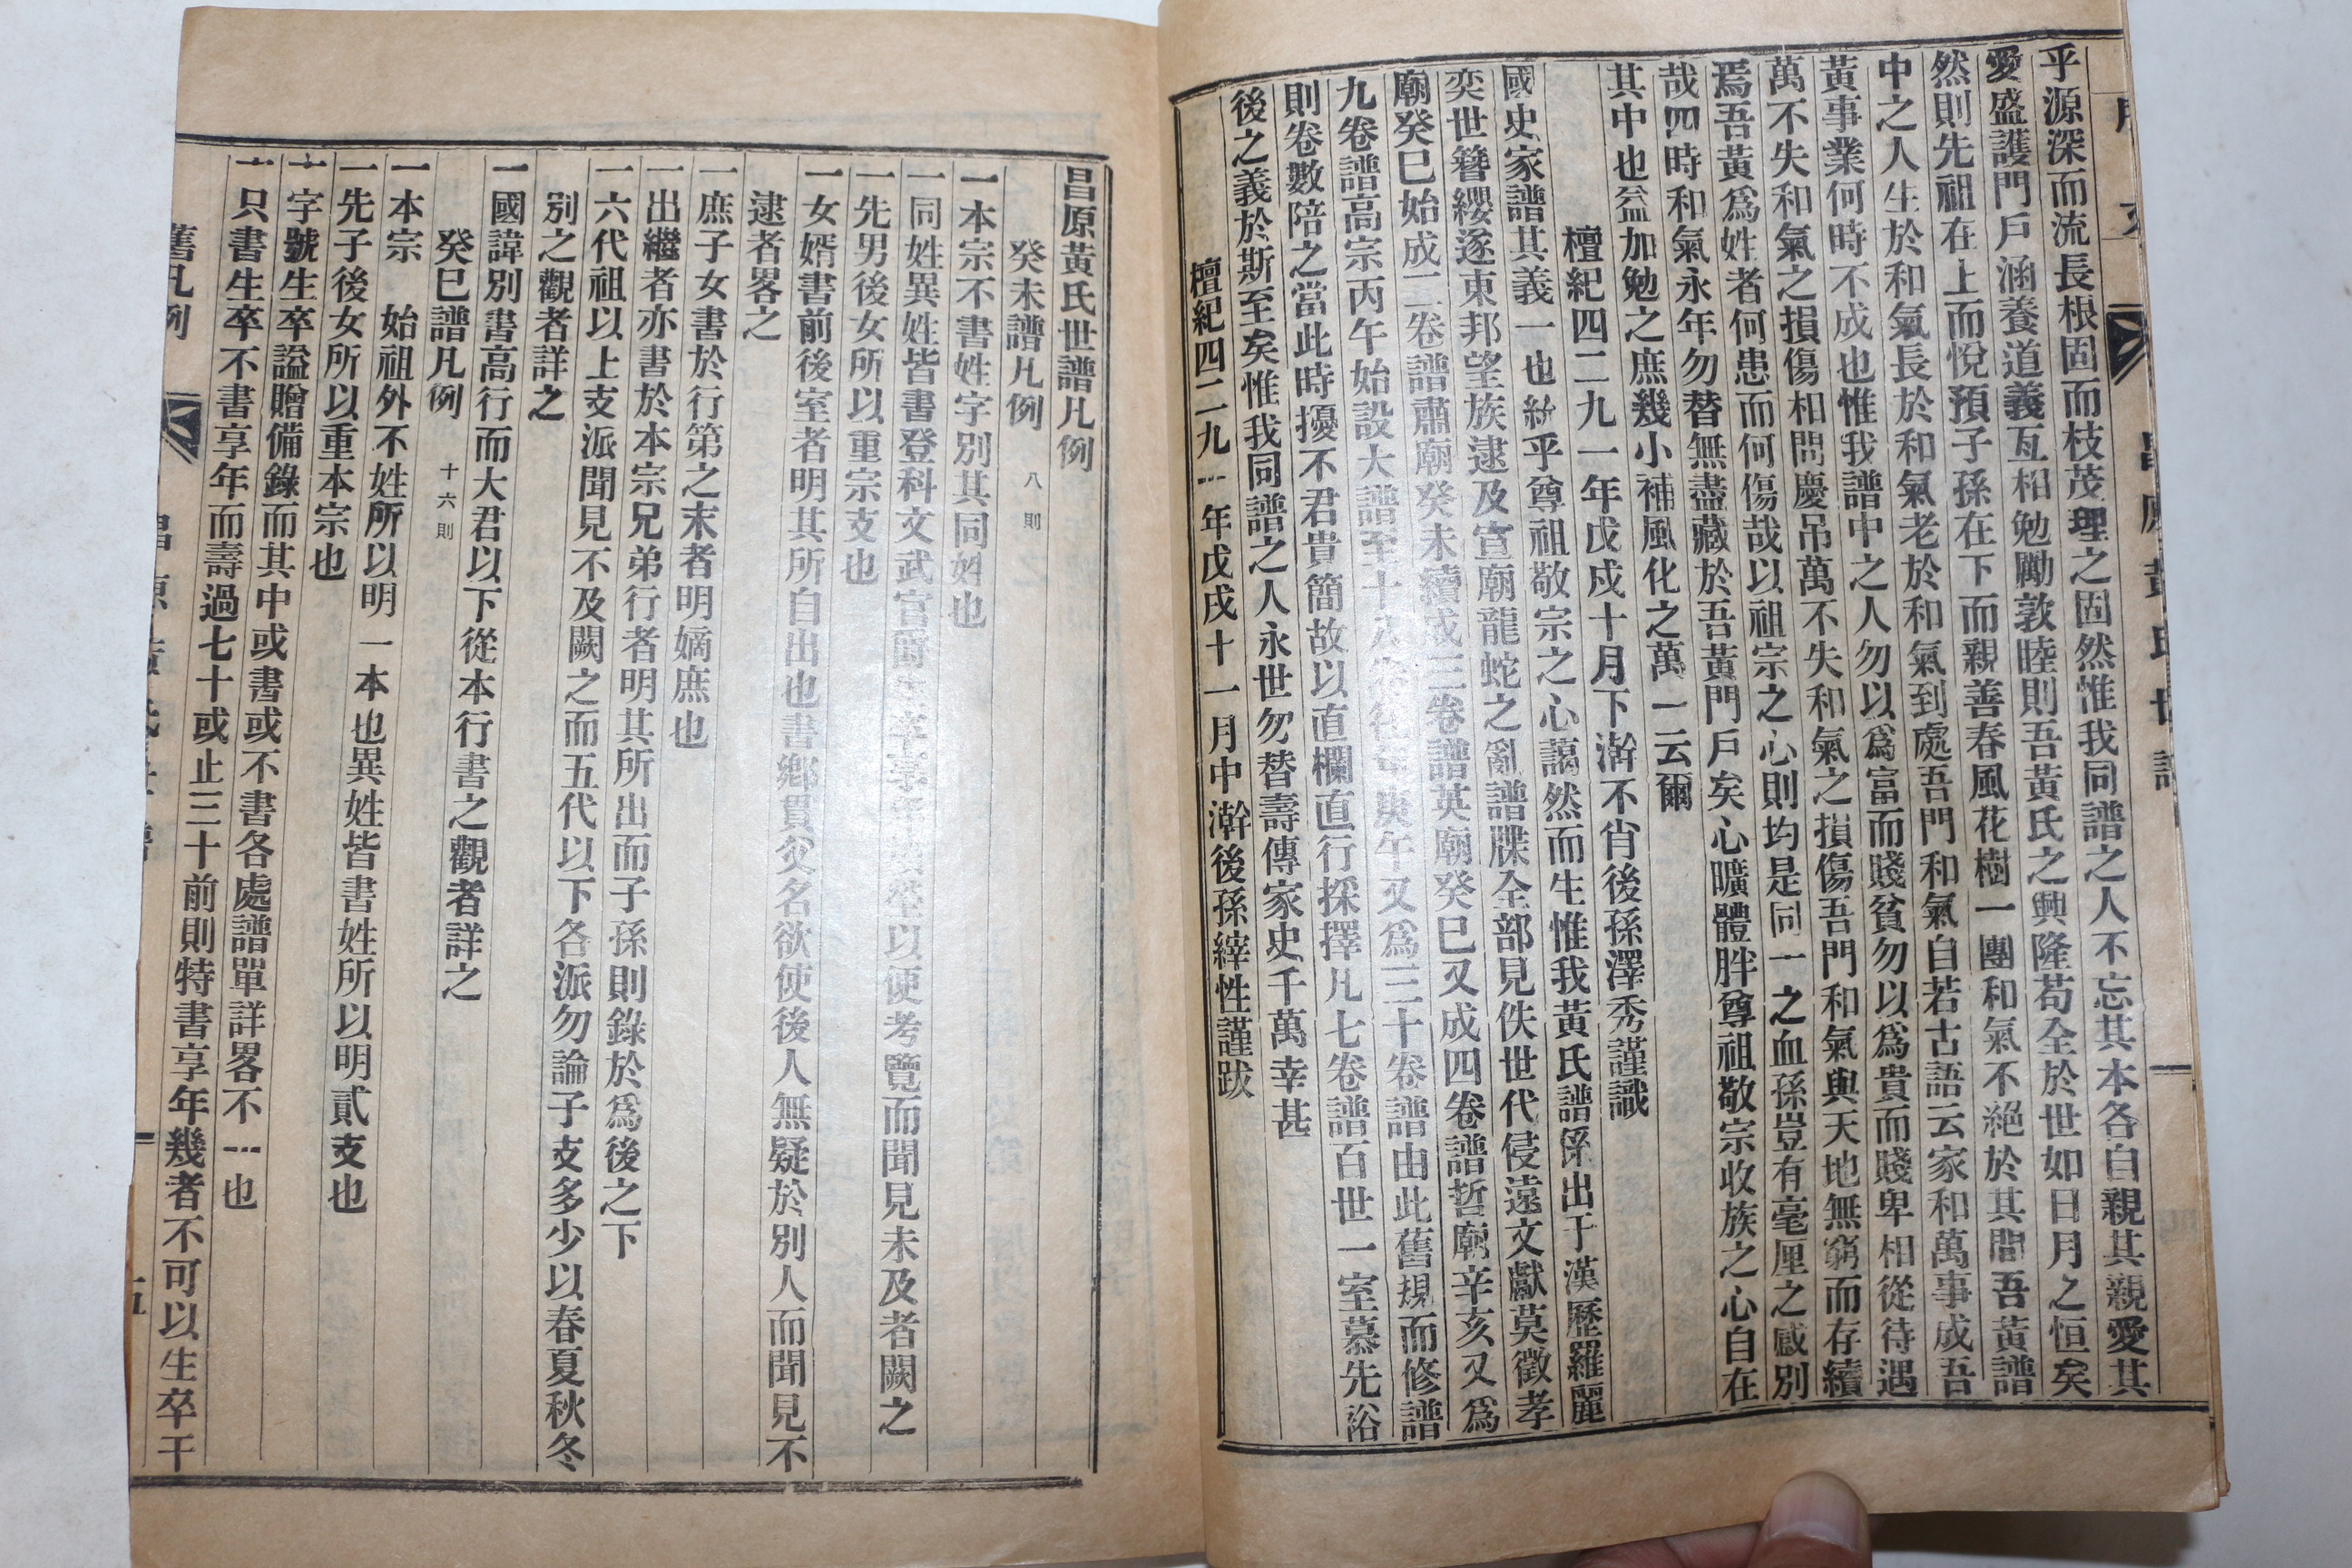 乎源深而流長根固而枝茂理之固然惟我同譜之人不忘其本各自親其親愛其
愛盛護門戶涵養道義亙相勉勵敦睦則吾黃氏之興隆苟全於世如日月之恒矣
然則先祖在上而悅預子孫在下而親善春風花樹一團和氣不絕於其間吾黃譜
中之人生於和氣長於和氣老於和氣到處吾門和氣自若古語云家和萬事成吾
黃事業何時不成也惟我譜中之人勿以爲富而賤貧勿以爲貴而賤卑相從待遇
萬不失和氣之損傷相問慶吊萬不失和氣之損傷吾門和氣與天地無窮而存續
焉吾黃爲姓者何患而何傷哉以祖宗之心則均是同一之血孫豈有毫厘之感別
哉四時和氣永年勿替無盡藏於吾黃門戶矣心曠體胖尊祖敬宗收族之心自在
其中也益加勉之庶幾小補風化之萬一云爾
檀紀四二九一年戊戌十月下澣不肖後孫澤秀謹識
國史家譜其義一也於乎尊祖敬宗之心藹然而生惟我黃氏譜係出于漢歷羅麗
奕世簪纓遂東邦望族逮及宣廟龍蛇之亂譜牒全部見佚世代侵遠文獻莫徵孝
廟癸巳始成二卷譜肅廟癸未續成三卷譜英廟癸巳又成四卷譜哲廟辛亥又爲
九卷譜高宗丙午始設大譜至十八卷後年庚午又爲三十卷譜由此舊規而修譜
則卷數陪之當此時擾不君貴簡故以直欄直行採擇凡七卷譜百世一室慕先裕
後之義於斯至矣惟我同譜之人永世勿替壽傳家史千萬幸甚
檀紀四二九一年戊戌十一月中澣後孫縡性謹跋
昌原黃氏世譜凡例
癸未譜凡例 八則
一本宗不書姓字別其同姓也
一同姓異姓皆書登科文武官爵生卒享年墳塋以便考覽而聞見未及者闕之
一先男後女所以重宗支也
一女婿書前後室者明其所自出也書鄉貫父名欲使後人無疑於別人而聞見不
逮者畧之
一庶子女書於行第之末者明嫡庶也
一出繼者亦書於本宗兄弟行者明其所出而子孫則錄於爲後之下
一六代祖以上支派聞見不及闕之而五代以下各派勿論子支多少以春夏秋冬
別之觀者詳之
一國諱別書高行而大君以下從本行書之觀者詳之
癸巳譜凡例 十六則
一本宗 始祖外不姓所以明一本也異姓皆書姓所以明貳支也
一先子後女所以重本宗也
一字號生卒謚贈備錄而其中或書或不書各處譜單詳畧不一也
一只書生卒不書享年而壽過七十或止三十前則特書享年幾者不可以生卒干
舊凡例